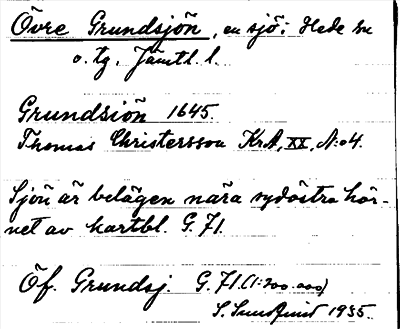 Övre Grundsjön, en sjö i Hede sn
o. tg. Jämtl. l.
Grundsiön 1645.
Thomas Christersson KrA, XX, N:o 4.
Sjön är belägen nära sydöstra hör-
net av kartbl. G. 71.
Öf. Grundsj. G. 71. (1:200.000)
S. Sundquist 1935.